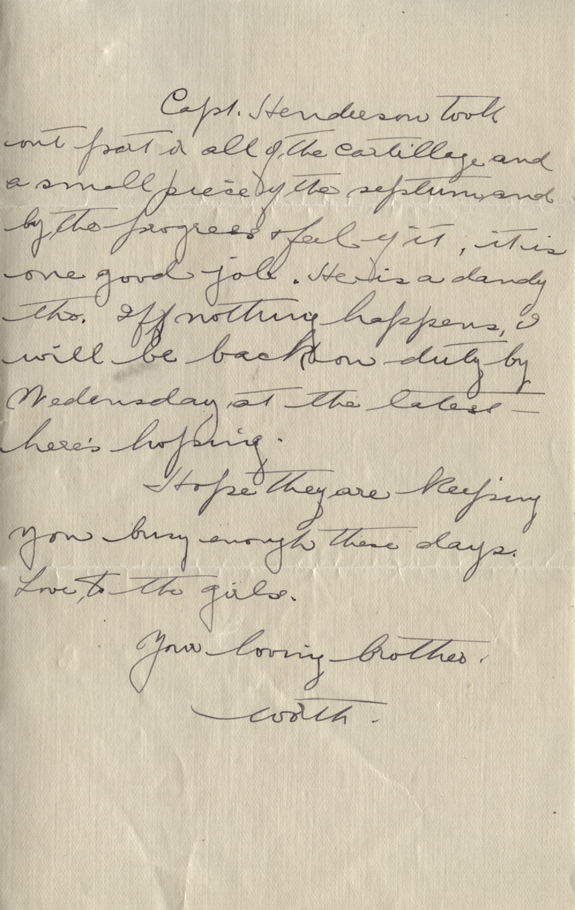 Capt. Henderson took
out part or all of the cartillage and
a small piece of the septum, and
by the progress & feel of it, it is
one good job. He is a dandy
tho. If nothing happens, I
will be back on duty by
Wedensday at the latest —
here's hoping.
Hope they are keeping
you busy enough these days.
Love to the girls.
Your loving brother.
Worth.